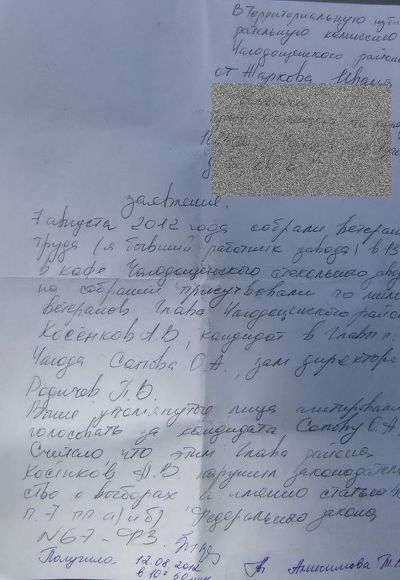 В Территориальную изби
рательную комиссию
Чагодощенского района
от Жаркова Ивана
заявление.
7 августа 2012 года собрали ветеран
труда (я бывший работник завода) в 13
в кафе Чагодощенского стекольного заво
на собрании присутствовали по мим
ветеранов Глава Чагодощенского район
Косёнков А.В., кандидат в Главы п.
Чагода Солова О.А., зам директора
Родичев П.В.
Выше упомянутые лица агитировали
голосовать за кандидата Солову О.А.
Считаю что этим Глава района
Косёнков А.В. нарушил законодатель
ство о выборах а именно статью
п. 7 пп а) и б) Федерального закона
N 67-ФЗ.
Получило 12.08.2012
в 10ч
Анисимова Т.